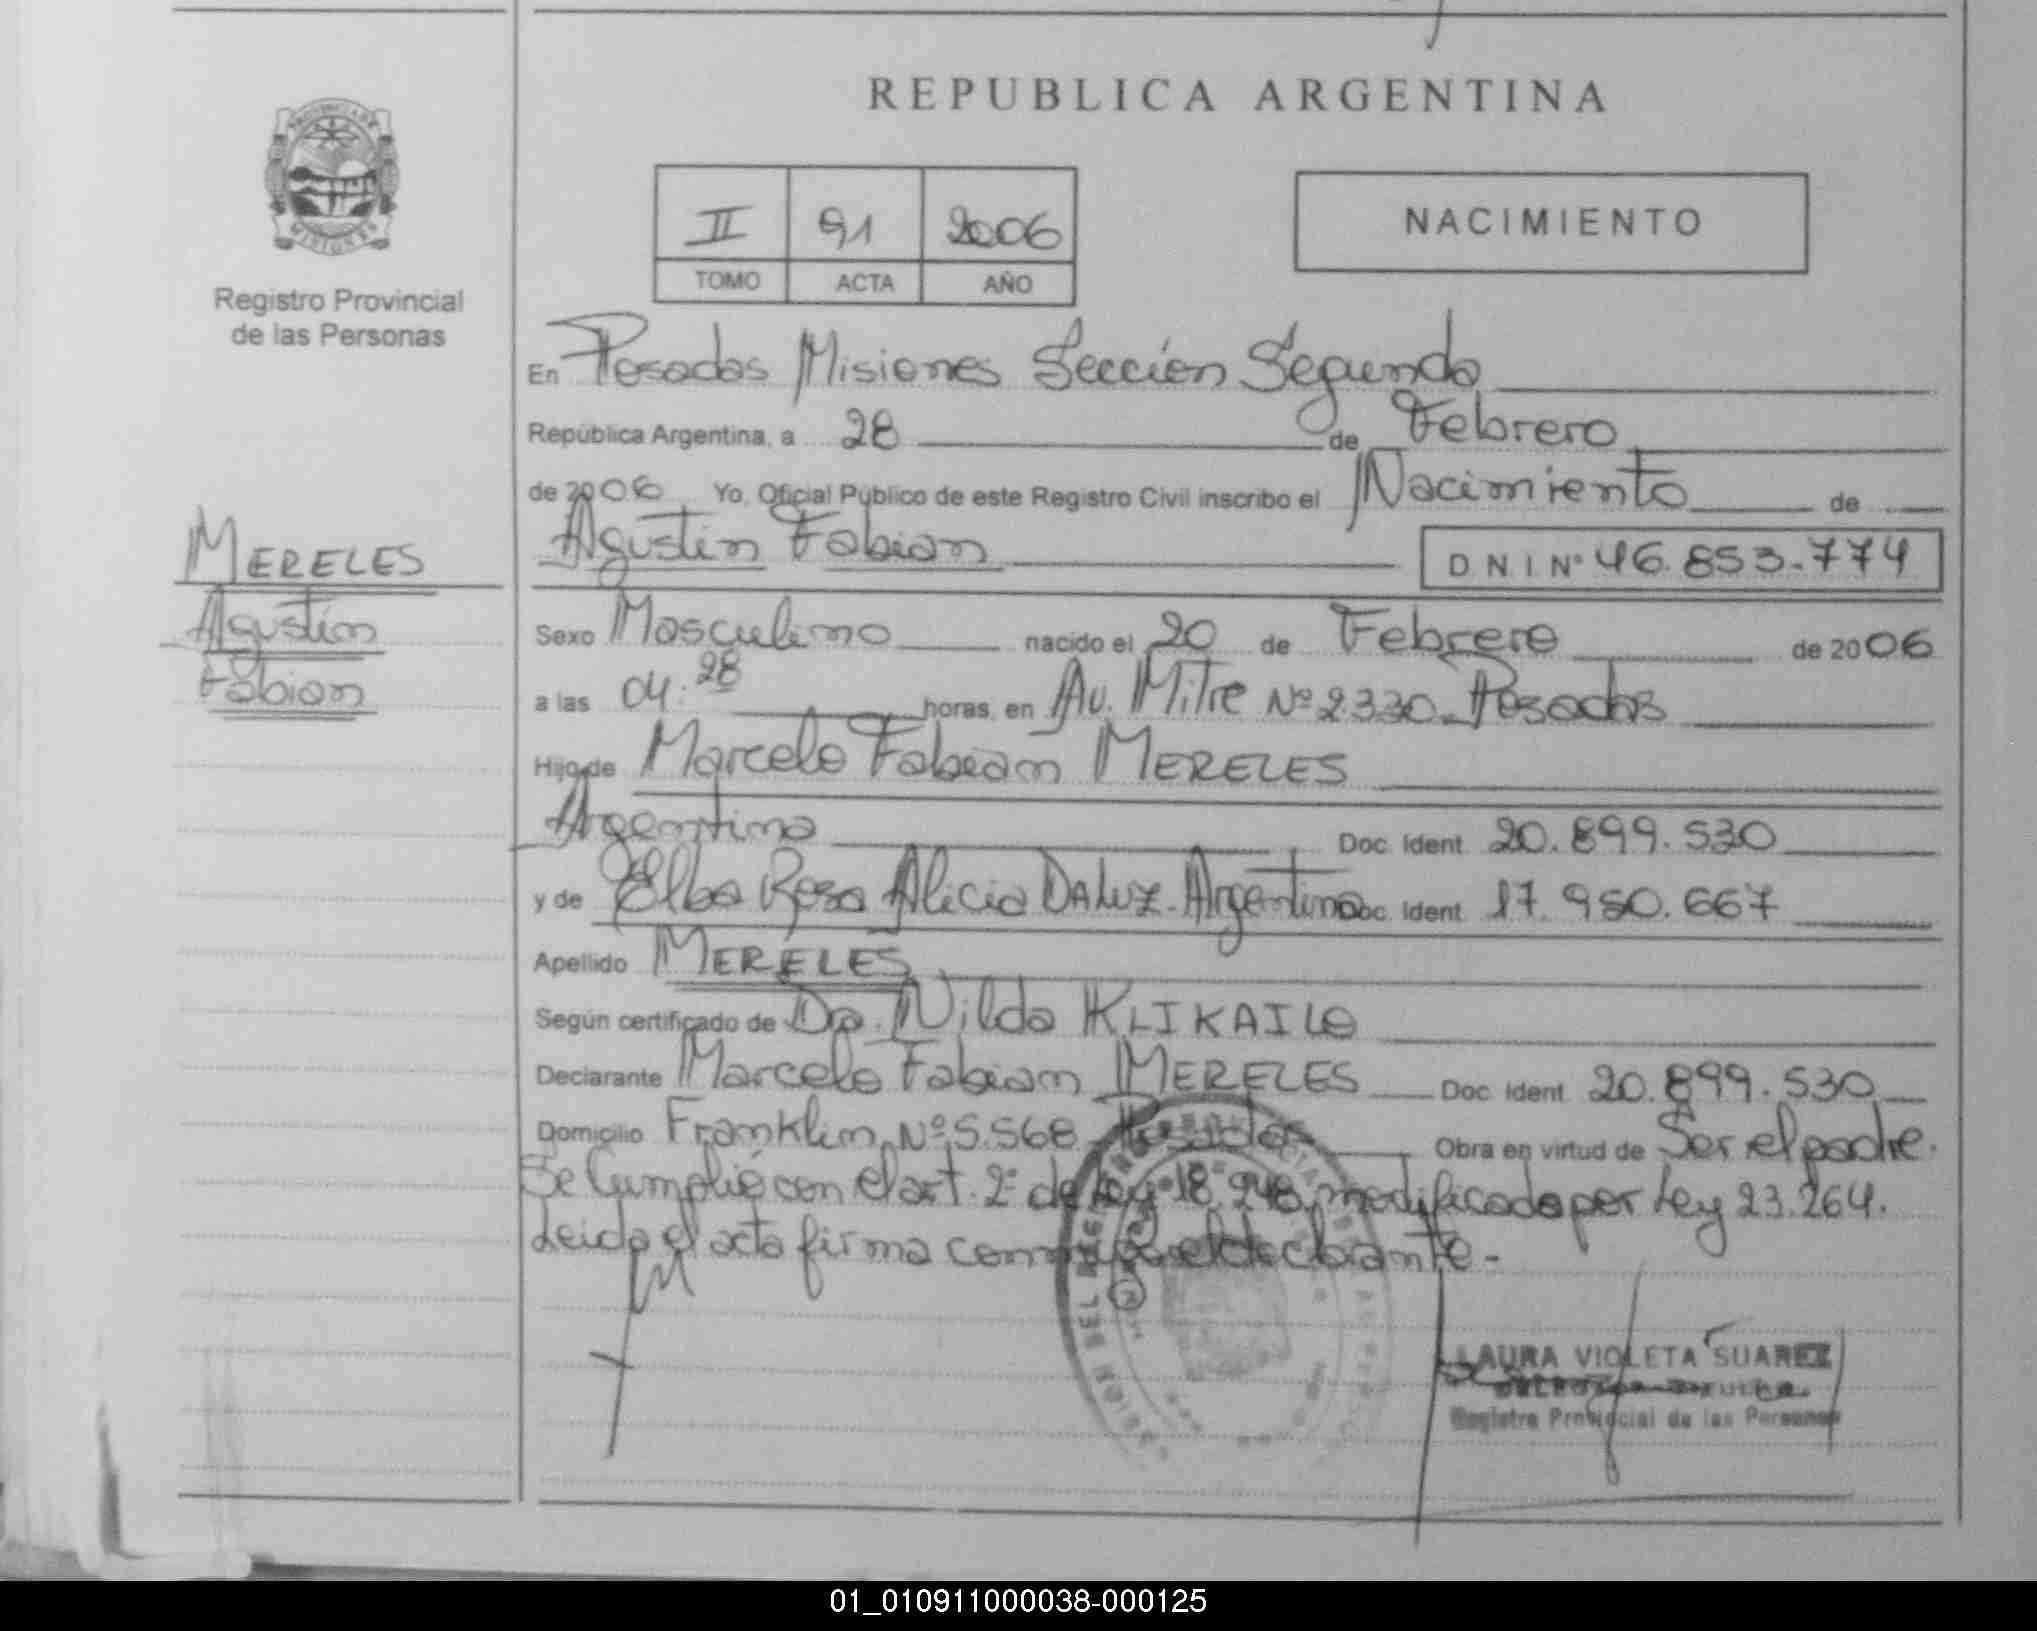 REPUBLICA ARGENTINA
PROVINCIA DE
MISIONES
Registro Provincial
de las Personas
II 91 2006
TOMO ACTA AÑO
NACIMIENTO
En Posadas Misiones Sección Segunda
República Argentina, a 28 de Febrero
de 2006 Yo, Oficial Público de este Registro Civil inscribo el Nacimiento de
MERELES
Agustín
Fabian
Agustín Fabian D.N.I. Nº 46.853.774
Sexo Masculino nacido el 20 de Febrero de 2006
a las 04:28 horas, en Av. Mitre Nº 2.330 Posadas
Hijo de Marcelo Fabian MERELES
Argentino Doc. Ident. 20.899.530
y de Elba Rosa Alicia DA LUZ. Argentina Doc. Ident. 17.950.667
Apellido MERELES
Según certificado de Dra. Nilda KLIKAILO
Declarante Marcelo Fabian MERELES Doc. Ident. 20.899.530
Domicilio Franklin Nº 5.568 Posadas Obra en virtud de Ser el padre.
Se Cumplió con el art. 2º de Ley 18.248 modificada por Ley 23.264.
Leida el acta firma conmigo el declarante-
LAURA VIOLETA SUAREZ
Registro Provincial de las Personas
01_010911000038-000125